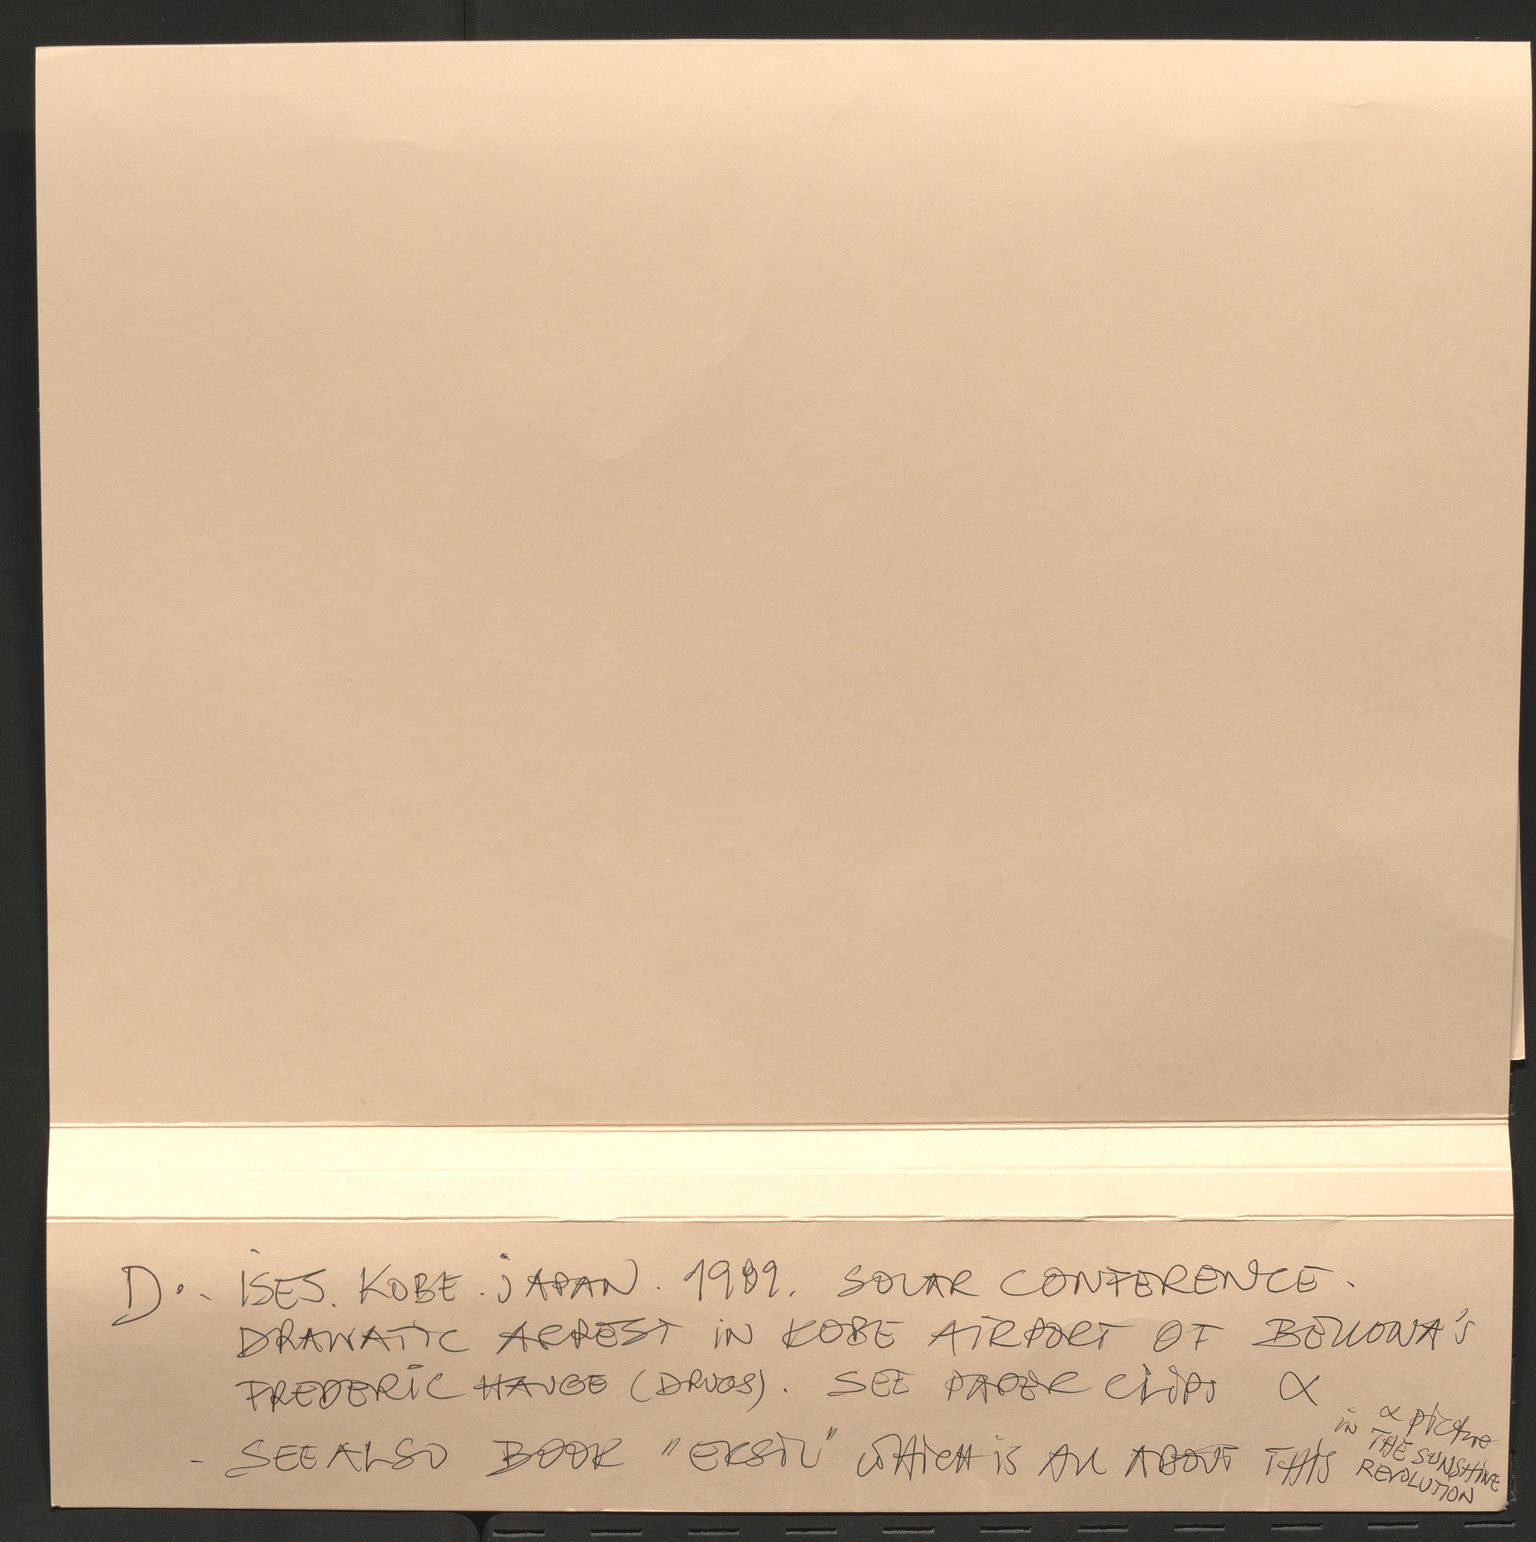 D:- ISES. KOBE. JAPAN. 1989. SOLAR CONFERENCE.
DRAMATIC ARREST IN KOBE AIRPORT OF BELLONA'S
FREDERIC HAUGE (DRUGS). SEE PAPER CLIPS α
- SEE ALSO BOOK "EKSIL" WHICH IS ALL ABOUT THIS
in α picture
THE SUNSHINE
REVOLUTION